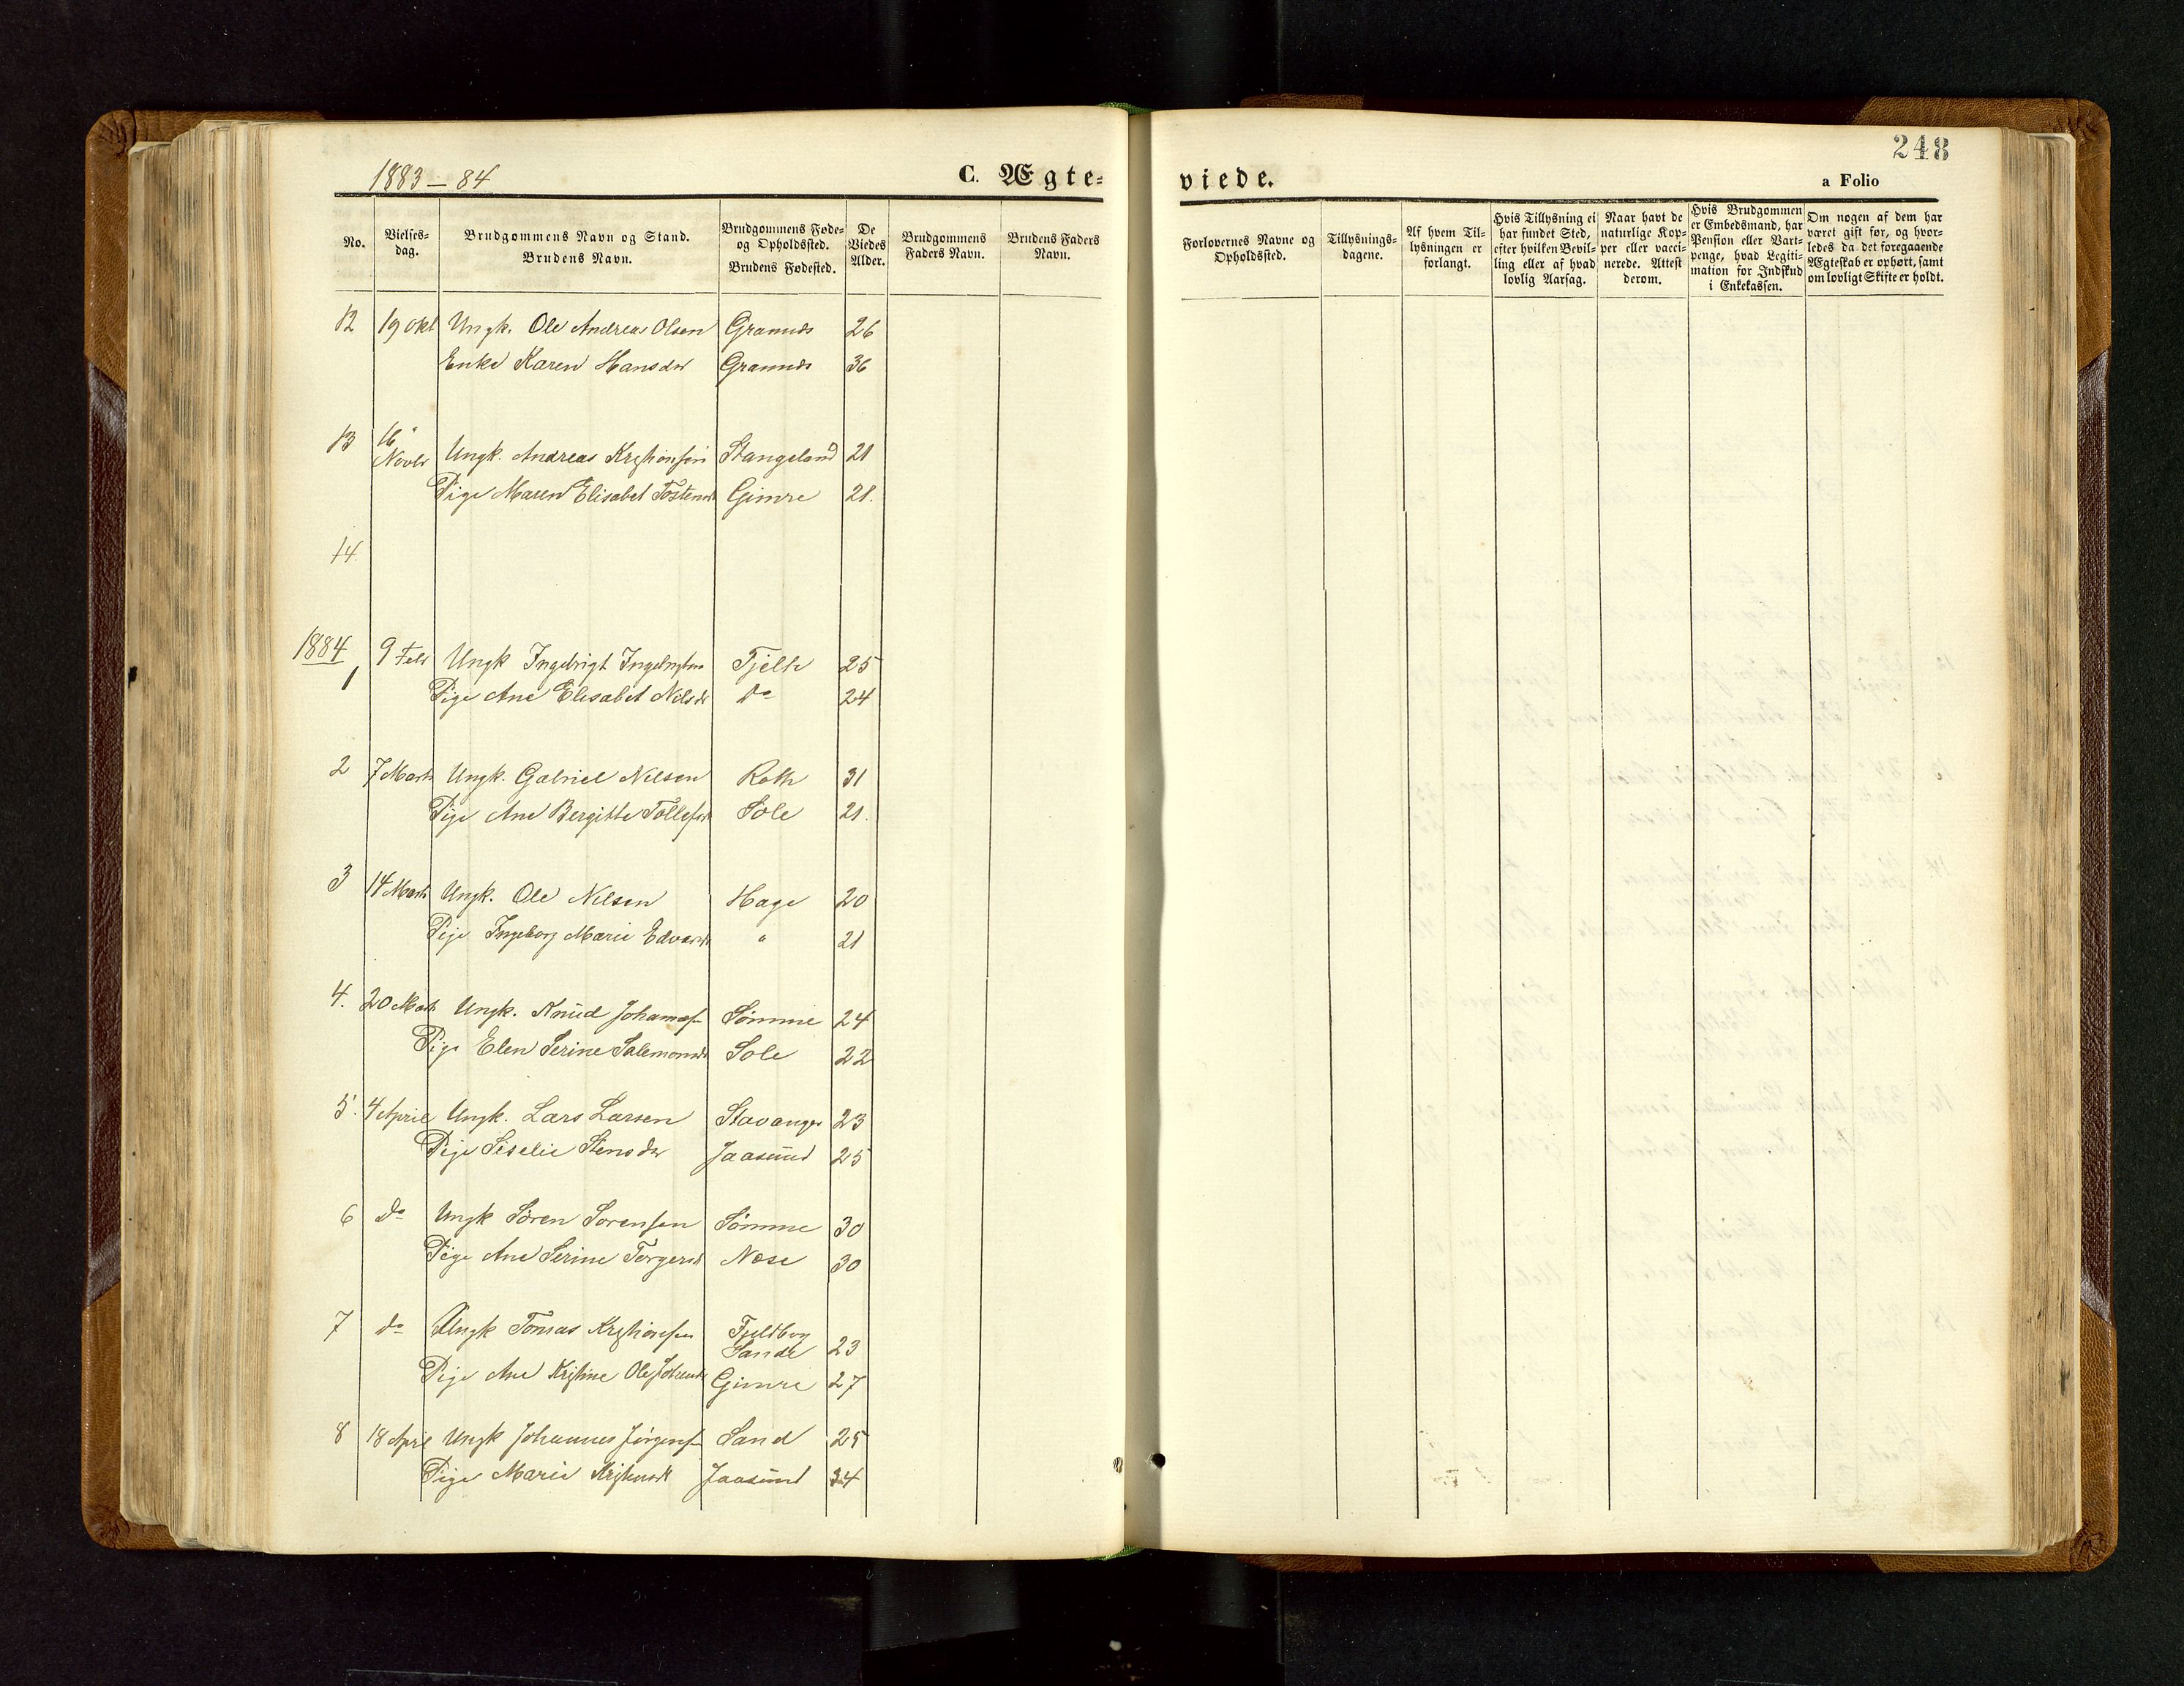 248
1883 - 84
C. Ægte=
viede.
a Folio
No.
Vielses=
dag.
Brudgommens Navn og Stand.
Brudens Navn.
Brudgommens Føde=
og Opholdssted.
Brudens Fødested.
De
Viedes
Alder.
Brudgommens
Faders Navn.
Brudens Faders
Navn.
Forlovernes Navne og
Opholdssted.
Tillysnings=
dagene.
Af hvem Til=
lysningen er
forlangt.
Hvis Tillysning ei
har fundet Sted,
efter hvilken Bevil=
ling eller af hvad
lovlig Aarsag.
Naar havt de
naturlige Kop=
per eller vacci=
nerede. Attest
derom.
Hvis Brudgommen
er Embedsmand, har
Pension eller Vart=
penge, hvad Legiti=
mation for Indskud
i Enkekassen.
Om nogen af dem har
været gift før, og hvor=
ledes da det foregaaende
Ægteskab er ophørt, samt
om lovligt Skifte er holdt.
12 19 Okt Ungk. Ole Andreas Olsen Grannes 26
Enke Karen Hansdr Grannes 36
13 16
Novbr Ungk. Andreas Kristiansen Stangeland 21
Pige Maren Elisabet Tostensd Gimre 21.
14.
1884
1 9 Febr Ungk Ingebrigt Ingebrigtsen Tjelte 25
Pige Ane Elisabet Nilsdr do 24
2 7 Marts Ungk. Gabriel Nilsen Roth 31
Pige Ane Bergitte Tollefsd Sole 21.
3 14 Marts Ungk. Ole Nilsen Hage 20
Pige Ingeborg Marie Edvardsd " 21
4. 20 Marts Ungk. Knud Johannes Sømme 24
Pige Elen Serine Salemonsd Sole 22
5. 4 April Ungk. Lars Larsen Stavanger 23
Pige Siselie Stensdr Jaasund 25
6 do Ungk Søren Sørensen Sømme 30
Pige Ane Serine Torgersd Nese 30
7 do Ungk Tomas Kristiansen
Sande 23
Pige Ane Kristine Gimre 27
8 18 April Ungk Johannes Jørgens Sand 25
Pige Marie Jaasund 24